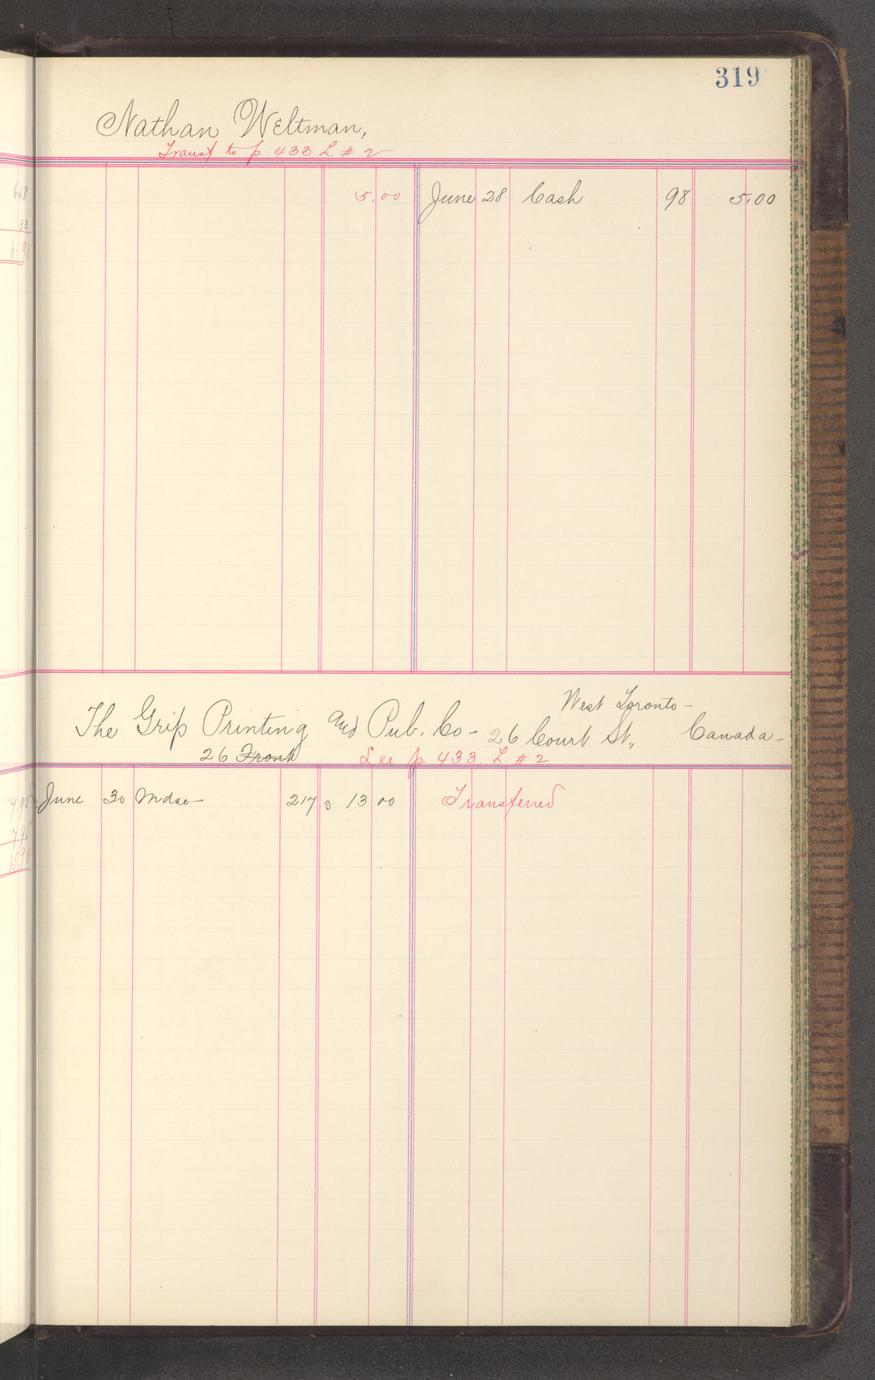 319
Nathan Weltman,
Transf to p. 433 L. # 2
5.00 June 28 Cash 98 5.00
West Toronto -
The Grip Printing and Pub. Co - 26 Court St., Canada -
26 Front See p. 433. L. # 2
June 30 Mdse - 217 13 00 Transferred